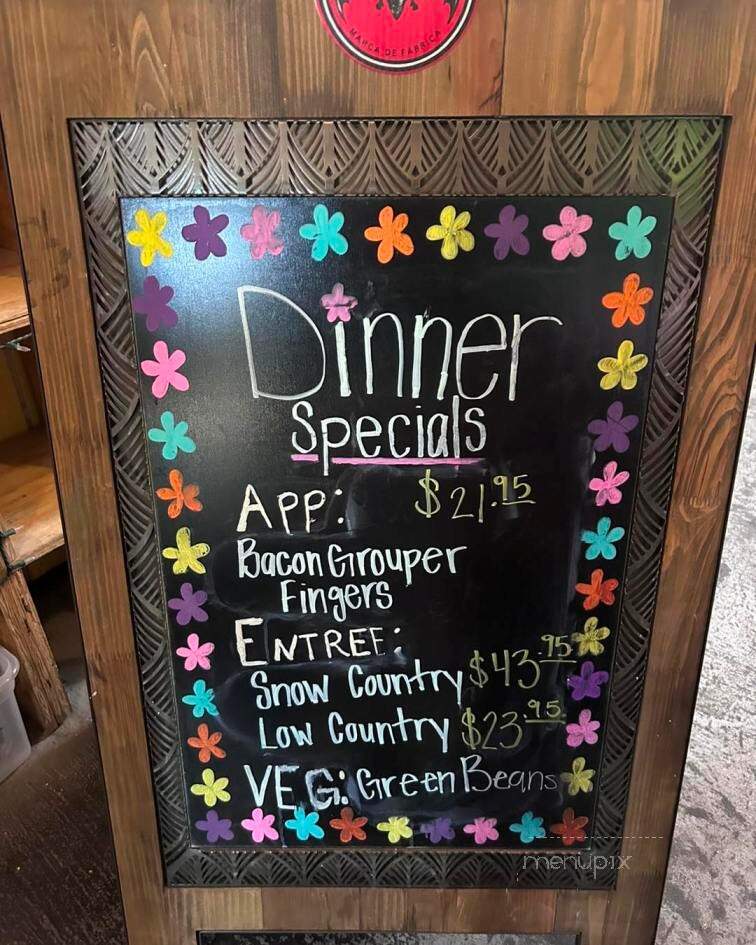 MARCA DE FABRICA
Dinner
Specials
APP: $21.95
Bacon Grouper
Fingers
ENTREE:
Snow Country $43.95
Low Country $23.95
VEG: Green Beans
menupix